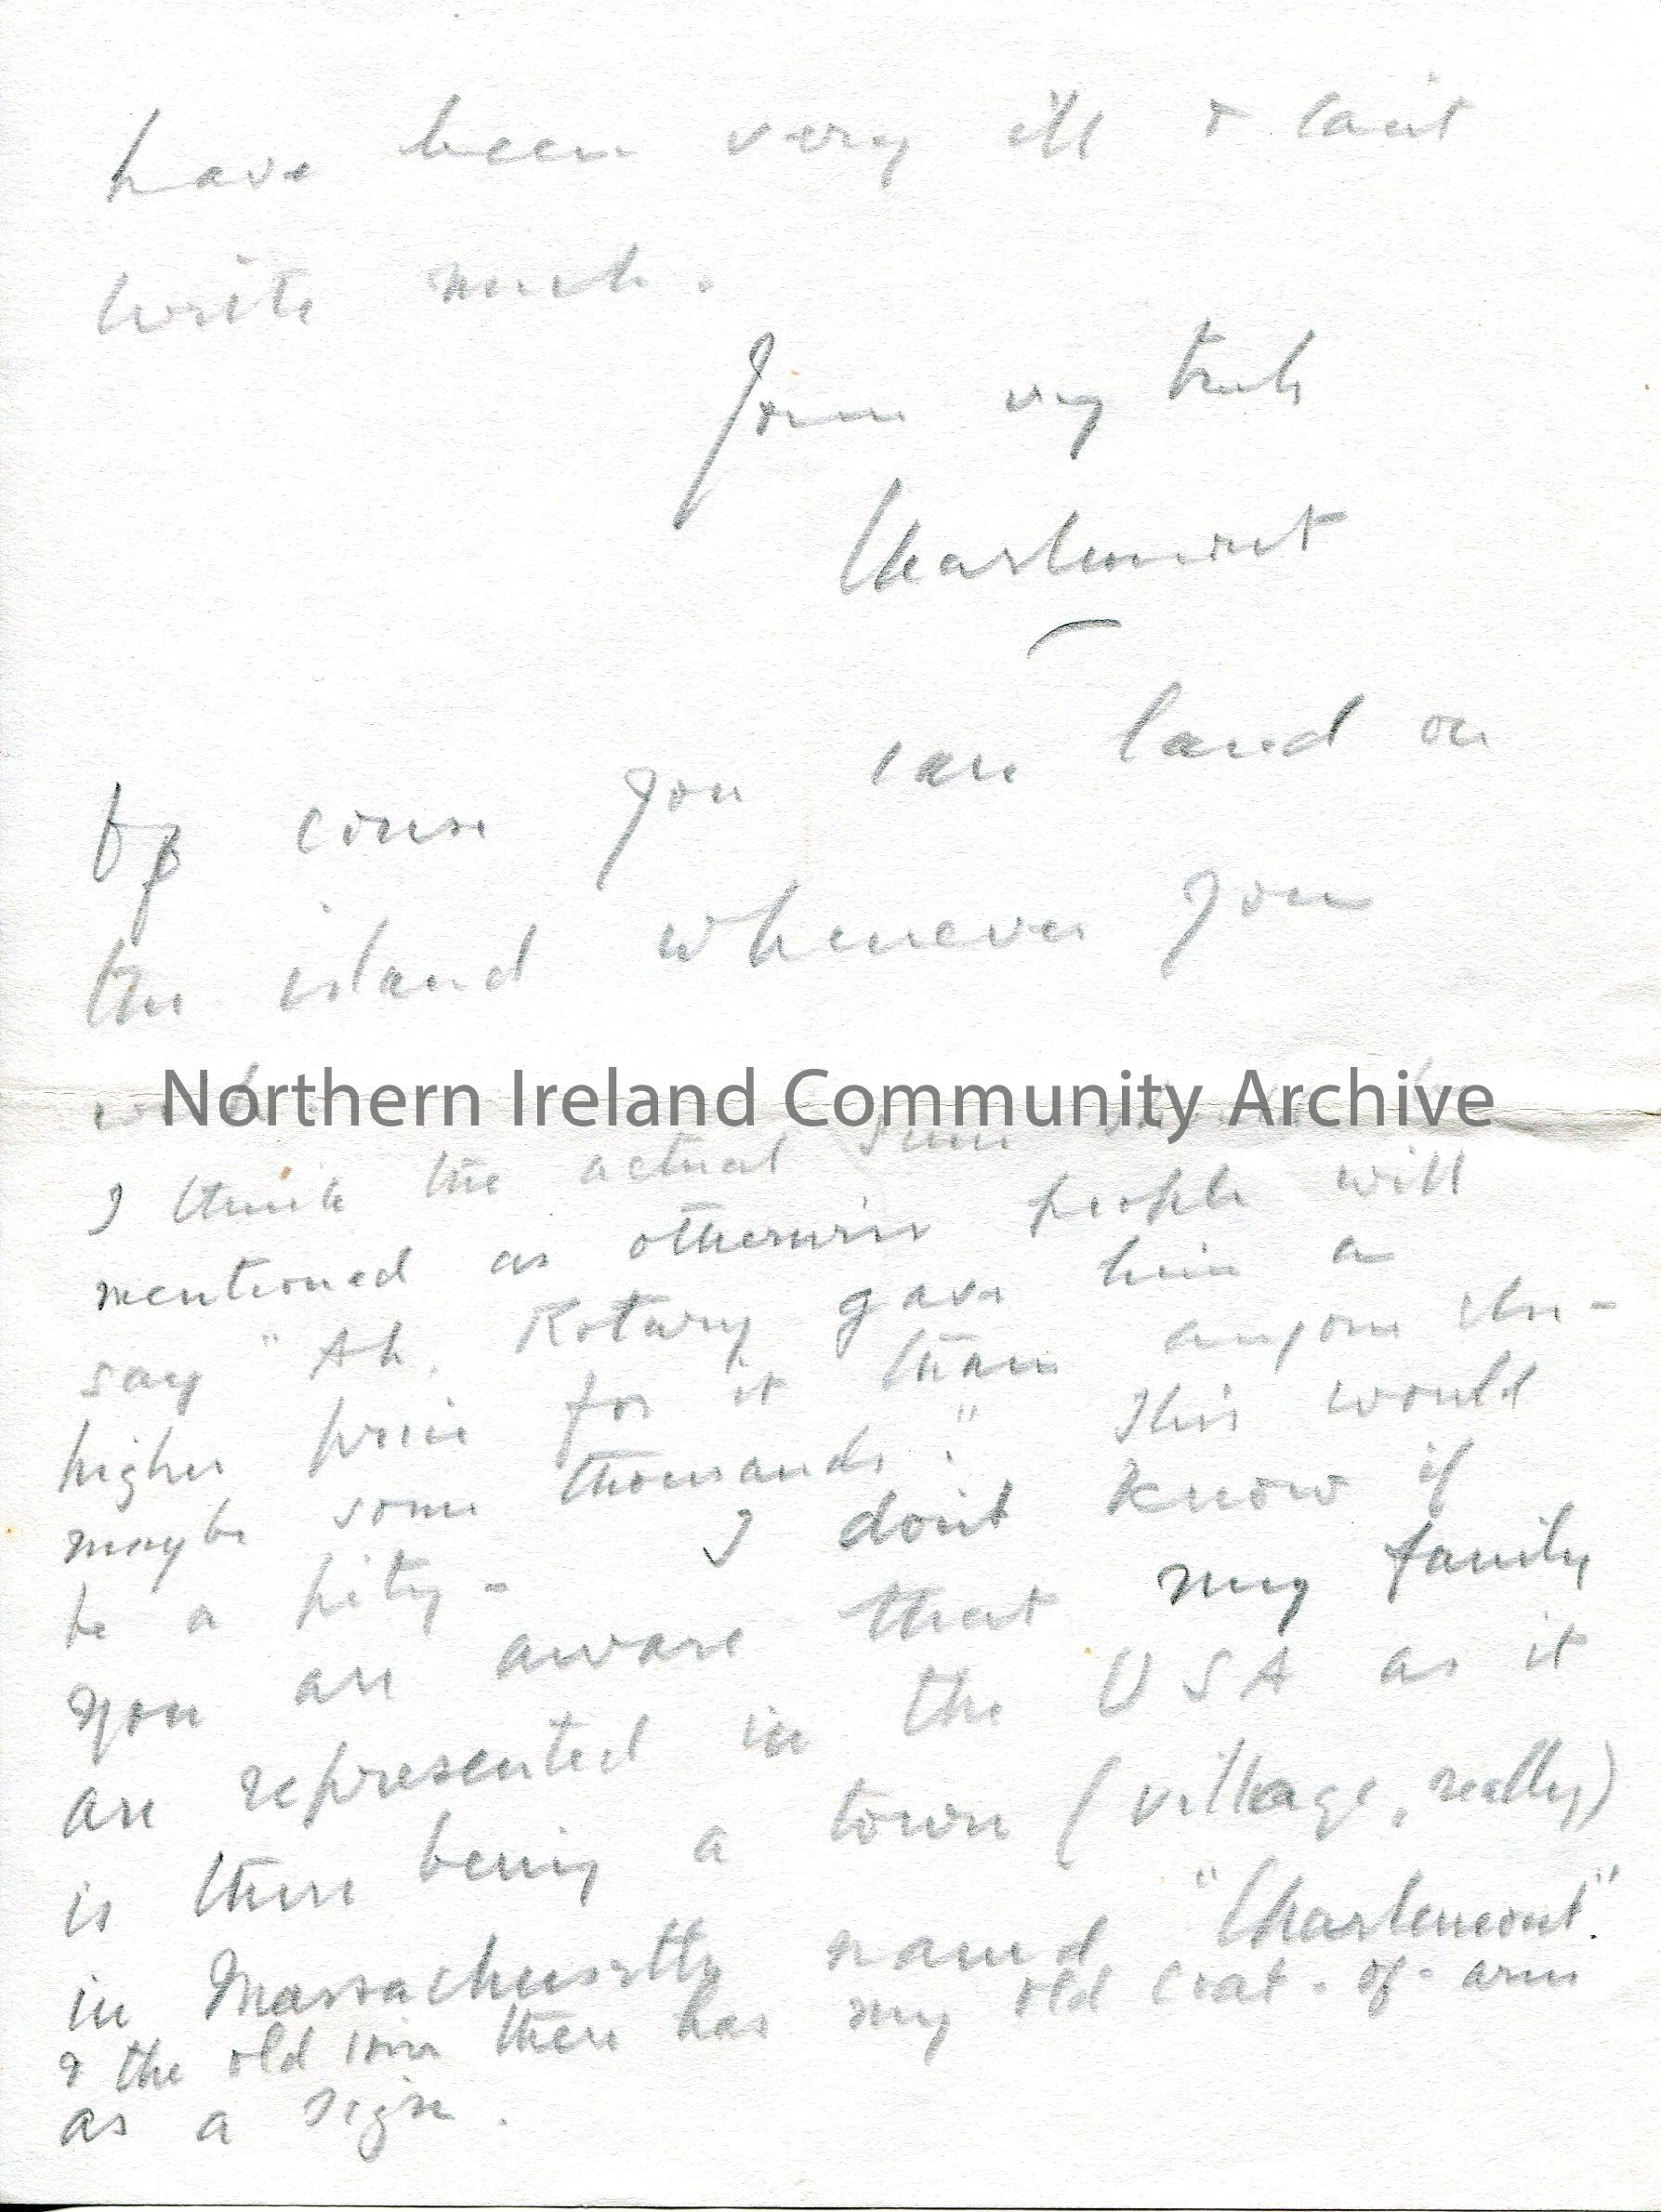 have been very ill & can't
write much.
Yours very truly
Charlemont
Of course you can land on
the island whenever you
Northern Ireland Community Archive
I think the actual sum
mentioned as otherwise people will
say "Ah. Rotary gave him a
higher price for it than anyone else -
maybe some thousands." This would
be a pity - I don't know if
you are aware that my family
are represented in the USA as it
is there being a town (village, really)
in Massachusetts named "Charlemont".
& the old inn there has my old coat-of-arms
as a sign.